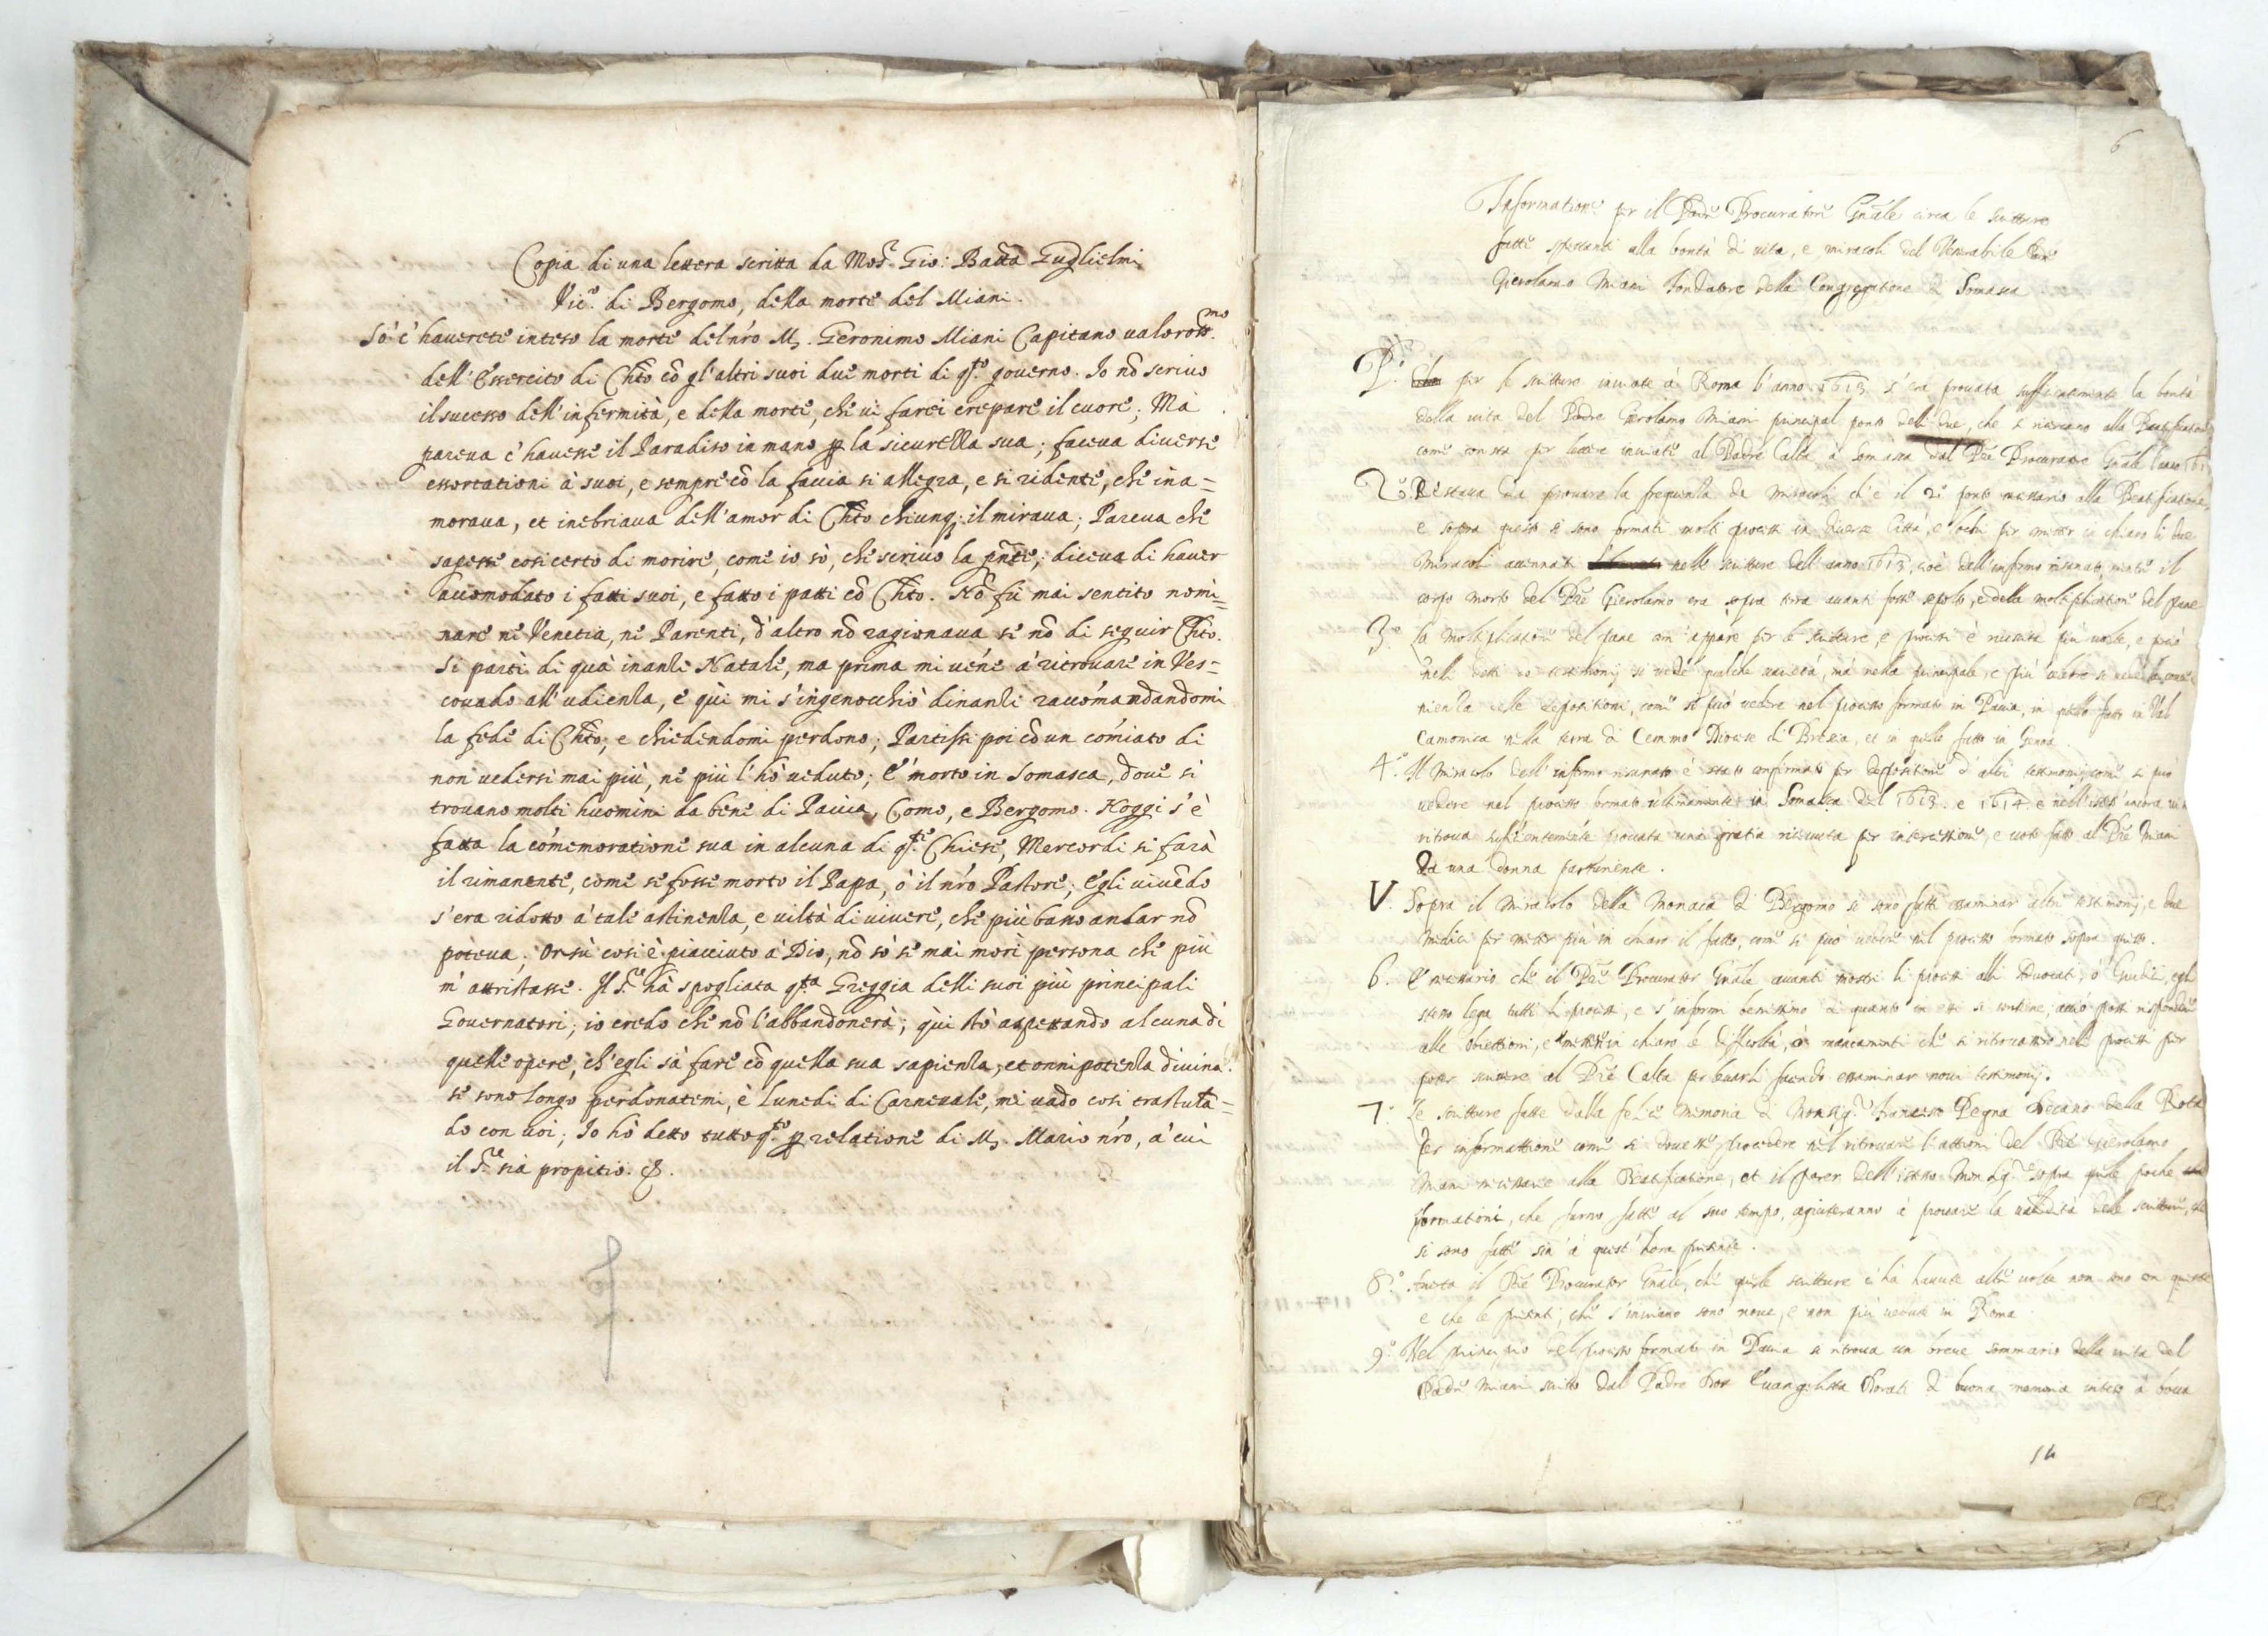 Copia di una lettera scritta da Mons.r Gio: Batta Guglielmi
Vic.o di Bergomo, della morte del Miani.
Sò c'haverete inteso la morte del n'ro M. Geronimo Miani Capitano valoross.mo
dell'Essercito di Chto cō gl'altri suoi due morti di q.sto governo. Io nō scrivo
il sucesso dell'infermità, e della morte, che vi farei crepare il cuore; Ma
pareva c'havesse il Paradiso in mano p la sicurezza sua; faceva diverse
essortationi à suoi, e sempre cō la faccia si allegra, e si ridente, che ina=
morava, et inebriava dell'amor di Chto chiunq; il mirava; Pareva che
sapesse cosi certo di morire, come io sò, che scrivo la pnte; diceva di haver
accomodato i fatti suoi, e fatto i patti cō Chto. Nō fù mai sentito nomi=
nare ne Venetia, ne Parenti, d'altro nō ragionava se nō di seguir Chto.
Si partì di quà inanzi Natale, ma prima mi vene à ritrovare in Ves=
covado all'udienza, e quì mi s'ingenocchiò dinanzi raccomandandomi
la fede di Chto; e chiedendomi perdono; Partissi poi cō un comiato di
non vedersi mai più, ne più l'hò veduto; E' morto in Somasca, dove si
trovano molti huomini da bene di Pavia, Como, e Bergomo. Hoggi s'è
fatta la comemoratione sua in alcuna di q.ste Chiese, Mercordi si farà
il rimanente, come se fosse morto il Papa, ò il n'ro Pastore; Egli vivēdo
s'era ridotto à tale astinenza, e viltà di vivere, che più basso andar nō
poteva; Orsù cosi è piacciuto à Dio, nō sò se mai morì persona che più
m'attristasse. Il S.re hà spogliata q.sta Greggia delli suoi più principali
Governatori; io credo che nō l'abbandonerà; quì stò aspettando alcuna di
quelle opere, ch'egli sà fare cō quella sua sapienza, et onnipotenza divina.
se sono longo perdonatemi, è Lunedi di Carnevale, mi vado cosi trastulā=
do con voi; Io hò detto tutto q.sto p relatione di M. Mario n'ro, à cui
il S.re sia propitio. &.
6
Informatione per il Padre Procuratore Gnale circa le scritture
fatte spettanti alla bontà di vita, e miracoli del Venerabile Pre
Gierolamo Miani Fondatore della Congregatione di Somasca
P.o per le scritture inviate à Roma l'anno 1613 s'era provata sufficientemente la bontà
della vita del Padre Gierolamo Miani principal ponto delli due, che si ricercano alla Beatificatione
come consta per lettere inviate al Padre Calta à Somasca dal Pre Procuratore Gnale
2.o Restava da provare la frequenza de miracoli ch'è il 2.o ponto necessario alla Beatificatione,
e sopra questo si sono formati molti processi in diverse Città, e lochi per metter in chiaro li due
Miracoli accennati nelle scritture dell'anno 1613, cioè dell'infermo risanato, mentre il
corpo morto del Pre Gierolamo era sopra terra avanti fosse sepolto, e della moltiplicatione del pane
3.o La moltiplicatione del pane com'appare per le scritture, e processi è riuscita più volte, e però
nelli detti testimonij si vede qualche varietà, mà nella principale, e più celebre si vede la conve=
nienza delle depositioni, come si può vedere nel processo formato in Pavia, in quello fatto in Val
Camonica nella terra di Cemmo Diocese di Brescia, et in quello fatto in Genova
4.o Il Miracolo dell'infermo risanato è stato confirmato per depositione d'altri testimonij come si può
vedere nel processo formato ultimamente in Somasca del 1613. e 1614 e nell'istess'ancora si
ritrova sufficientemente provata una gratia ricevuta per intercessione, e voto fatto al Pre Miani
da una donna partoriente.
V. Sopra il Miracolo della Monaca di Bergomo si sono fatti essaminar altri testimonij, e due
Medici per metter più in chiaro il fatto, come si può vedere nel processo formato sopra questo.
6. E' necessario che il Pre Procurator Gnale avanti mostri li processi alli Avocati, ò Giudici, egli
stesso lega tutti li processi, e s'informi benissimo di quanto in essi si contiene, acciò possi rispondere
alle obiettioni, e metter in chiaro le difficoltà, ò mancamenti che si ritrovassero nelli processi per
poter scrivere al Pre Calta per levarli facendo essaminar novi testimonij.
7. Le scritture fatte dalla felice memoria di Monsig.r Francesco Pegna Decano della Rota
per informattione come si dovesse procedere nel ritrovare l'attioni del Pre Gierolamo
Miani necessarie alla Beatificatione, et il parer dell'istesso Monsig.r sopra quelle poche
formationi, che furno fatte al suo tempo, agiuteranno à provare la validità delle scritture, che
si sono fatte sin'à quest'hora presente.
8.o Averta il Pre Procurator Gnale, che quelle scritture c'hà havute altre volte non sono con queste
e che le presenti, che s'inviano sono nove, e non più vedute in Roma
9.o Nel principio del processo formato in Pavia si ritrova un breve sommario della vita del
Padre Miani scritto dal Padre Don Evangelista Dorati di buona memoria inteso à bocca